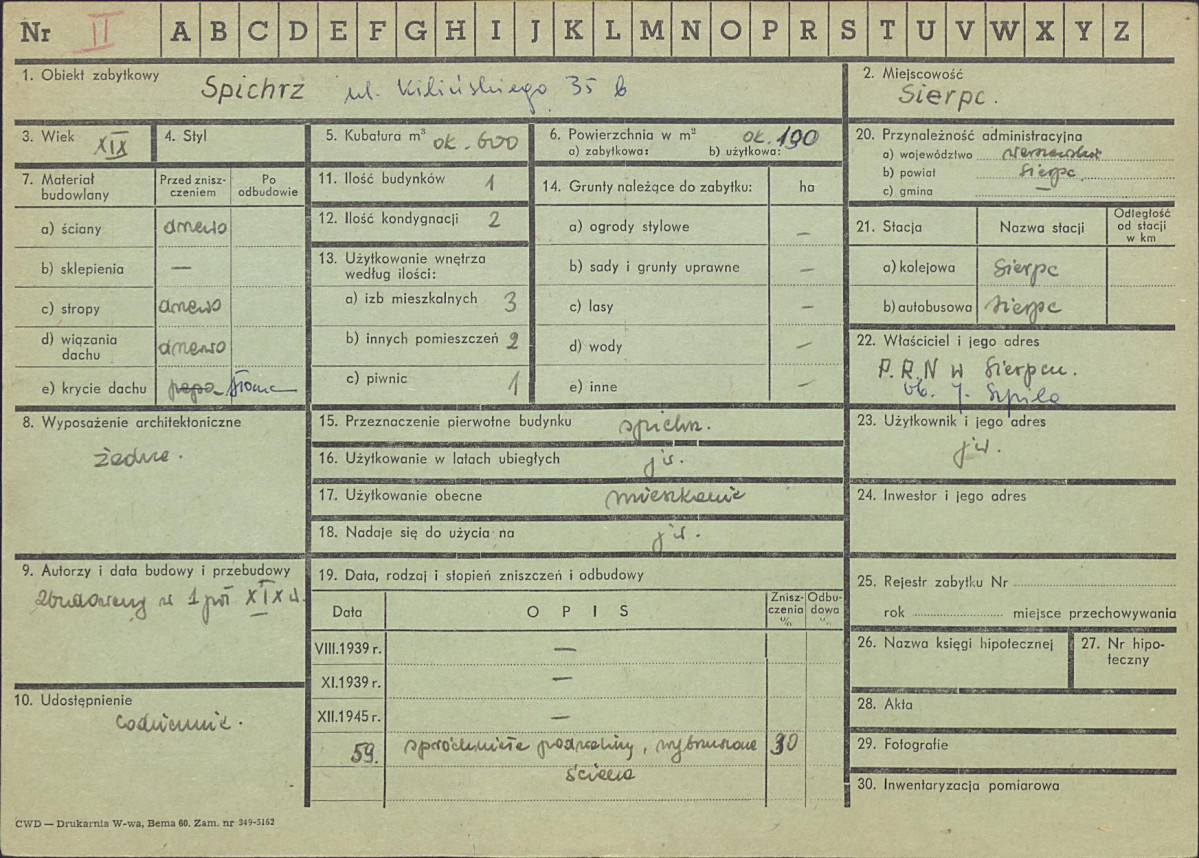 Nr II A B C D E F G H I J K L M N O P R S T U V W X Y Z
1. Obiekt zabytkowy
Spichrz ul. Kilińskiego 35 b
2. Miejscowość
Sierpc.
3. Wiek XIX
4. Styl
5. Kubatura m³ ok. 600
6. Powierzchnia w m² ok. 190
a) zabytkowa: b) użytkowa:
20. Przynależność administracyjna
a) województwo warszawskie
b) powiat Sierpc.
c) gmina —
7. Materiał budowlany
Przed zniszczeniem
Po odbudowie
a) ściany drewno
b) sklepienia —
c) stropy drewno
d) wiązania dachu drewno
e) krycie dachu papa słoma
11. Ilość budynków 1
12. Ilość kondygnacji 2
13. Użytkowanie wnętrza według ilości:
a) izb mieszkalnych 3
b) innych pomieszczeń 2
c) piwnic 1
14. Grunty należące do zabytku: ha
a) ogrody stylowe —
b) sady i grunty uprawne —
c) lasy —
d) wody —
e) inne —
21. Stacja
Nazwa stacji
Odległość od stacji w km
a) kolejowa Sierpc
b) autobusowa Sierpc
22. Właściciel i jego adres
P.R.N w Sierpcu.
ob. J. Szpila
8. Wyposażenie architektoniczne
żadne.
15. Przeznaczenie pierwotne budynku spichrz.
16. Użytkowanie w latach ubiegłych j.w.
17. Użytkowanie obecne mieszkanie
18. Nadaje się do użycia na j.w.
23. Użytkownik i jego adres
j.w.
24. Inwestor i jego adres
9. Autorzy i data budowy i przebudowy
zbudowany w 1 poł XIX w.
10. Udostępnienie
codziennie.
19. Data, rodzaj i stopień zniszczeń i odbudowy
Data
OPIS
Zniszczenia %
Odbudowa %
VIII.1939 r. —
XI.1939 r. —
XII.1945 r. —
59. spróchniałe podwaliny, wybrzuszone 30
ściana
25. Rejestr zabytku Nr
rok miejsce przechowywania
26. Nazwa księgi hipotecznej
27. Nr hipoteczny
28. Akta
29. Fotografie
30. Inwentaryzacja pomiarowa
CWD — Drukarnia W-wa, Bema 60. Zam. nr 349-5162